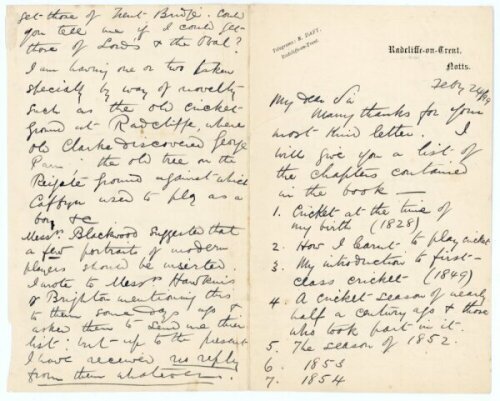 Telegrams: R. DAFT,
Radcliffe-on-Trent.
Radcliffe-on-Trent,
Notts.
Feby 24/99
My dear Sir
Many thanks for your
most kind letter. I
will give you a list of
the chapters contained
in the book —
1. Cricket at the time of
my birth (1828)
2. How I learnt to play cricket
3. My introduction to first-
class cricket (1849)
4. A cricket season of nearly
half a century ago & those
who took part in it.
5. The season of 1852.
6. 1853
7. 1854
get those of Trent Bridge. Could
you tell me if I could get
those of Lords & the Oval?
I am having one or two taken
specially by way of novelty
such as the old cricket
ground at Radcliffe, where
old Clarke discovered George
Parr: the old tree on the
Reigate Ground against which
Caffyn used to play as a
boy &c.
Messrs. Blackwood suggested that
a few portraits of modern
players should be inserted
I wrote to Messrs Hawkins
of Brighton mentioning this
to them some days ago &
asked them to send me their
list: but up to the present
I have received no reply
from them whatever.